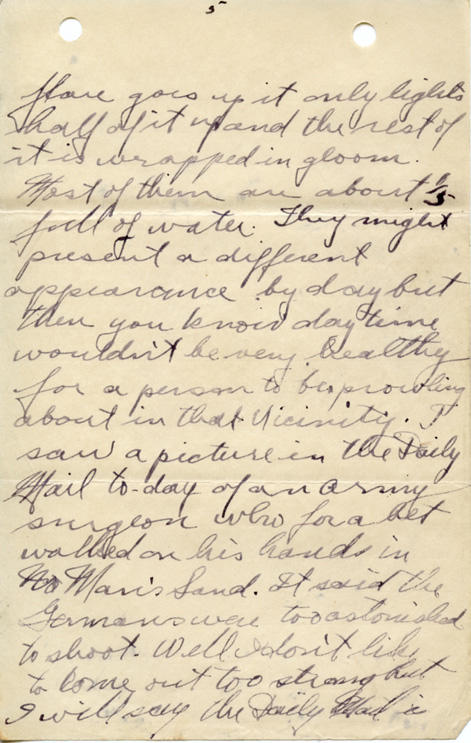 5
flare goes up it only lights
half of it up and the rest of
it is wrapped in gloom.
Most of them are about 1/3
full of water. They might
present a different
appearance by day but
then you know daytime
wouldn't be very healthy
for a person to be prowling
about in that vicinity. I
saw a picture in the Daily
Mail to-day of an army
surgeon who for a bet
walked on his hands in
No Man's Land. It said the
Germans were too astonished
to shoot. Well I don't like
to come out too strong but
I will say the Daily Mail is